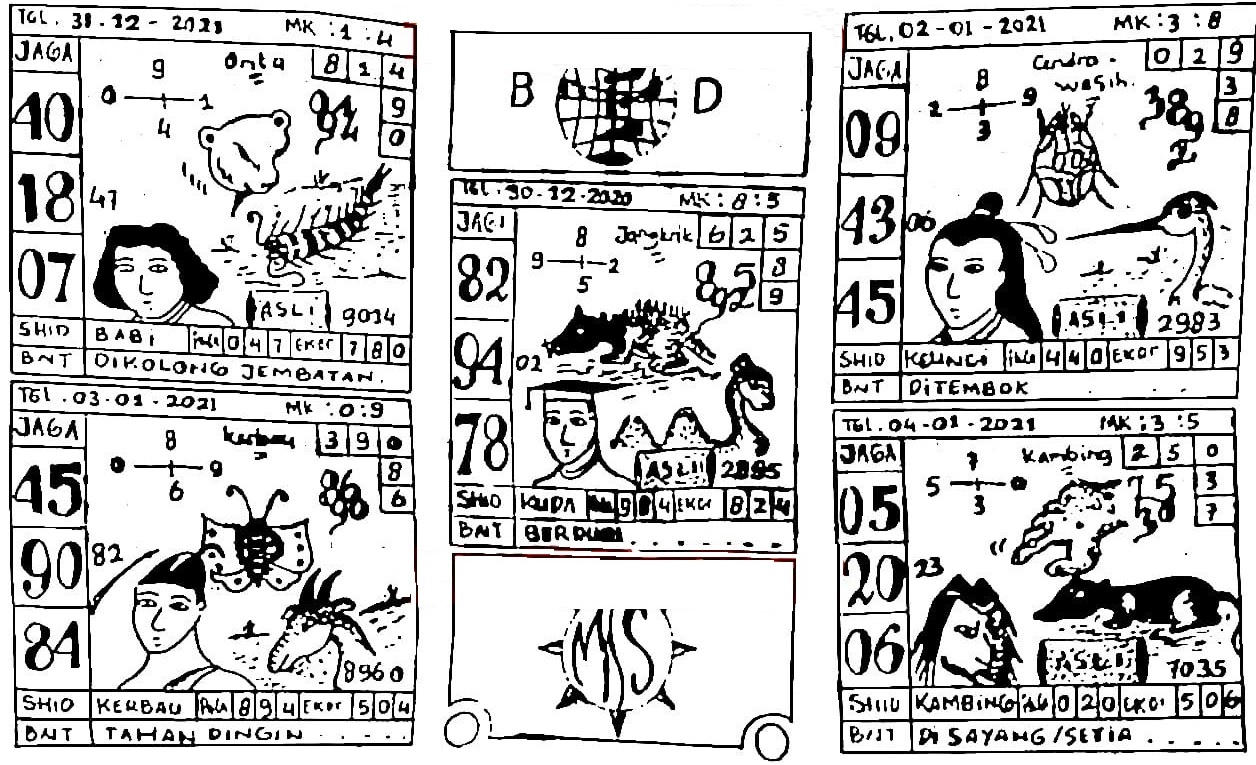 TGL. 31-12-2021 MK : 1 : 4
JAGA
9
Onta
8 2 4
0 1
4
92
94
9
0
40
18
47
07
ASLI
9034
SHIO BABI 0 4 7 EKOR 7 8 0
BNT DIKOLONG JEMBATAN.
TGL. 03-01-2021 MK : 0 : 9
JAGA
8
Kerbau
3 9 0
0 9
6
86
8
6
45
90
82
84
8960
SHIO KERBAU Pala 8 9 4 EKOR 5 0 4
BNT TAHAN DINGIN . . . . .
B D
TGL. 30-12-2020 MK : 8 : 5
JAGA
8
Jangkrik
6 2 5
9 2
5
85
892
8
9
82
94
02
78
ASLI
2895
SHIO KUDA 9 8 4 EKOR 8 2 4
BNT BERDURI . . . . . . .
MS
TGL. 02-01-2021 MK : 3 : 8
JAGA
8
Cendra-
wasih.
0 2 9
2 9
3
38
9
2
3
8
09
43
06
45
ASLI
2983
SHIO KELINCI Pala 4 4 0 EKOR 9 5 3
BNT DITEMBOK
TGL. 04-01-2021 MK : 3 : 5
JAGA
7
Kambing
2 5 0
5 0
3
75
38
3
7
05
20
23
06
ASLI
7035
SHIO KAMBING Pala 0 2 0 EKOR 5 0 6
BNT DI SAYANG/SETIA . . . . .